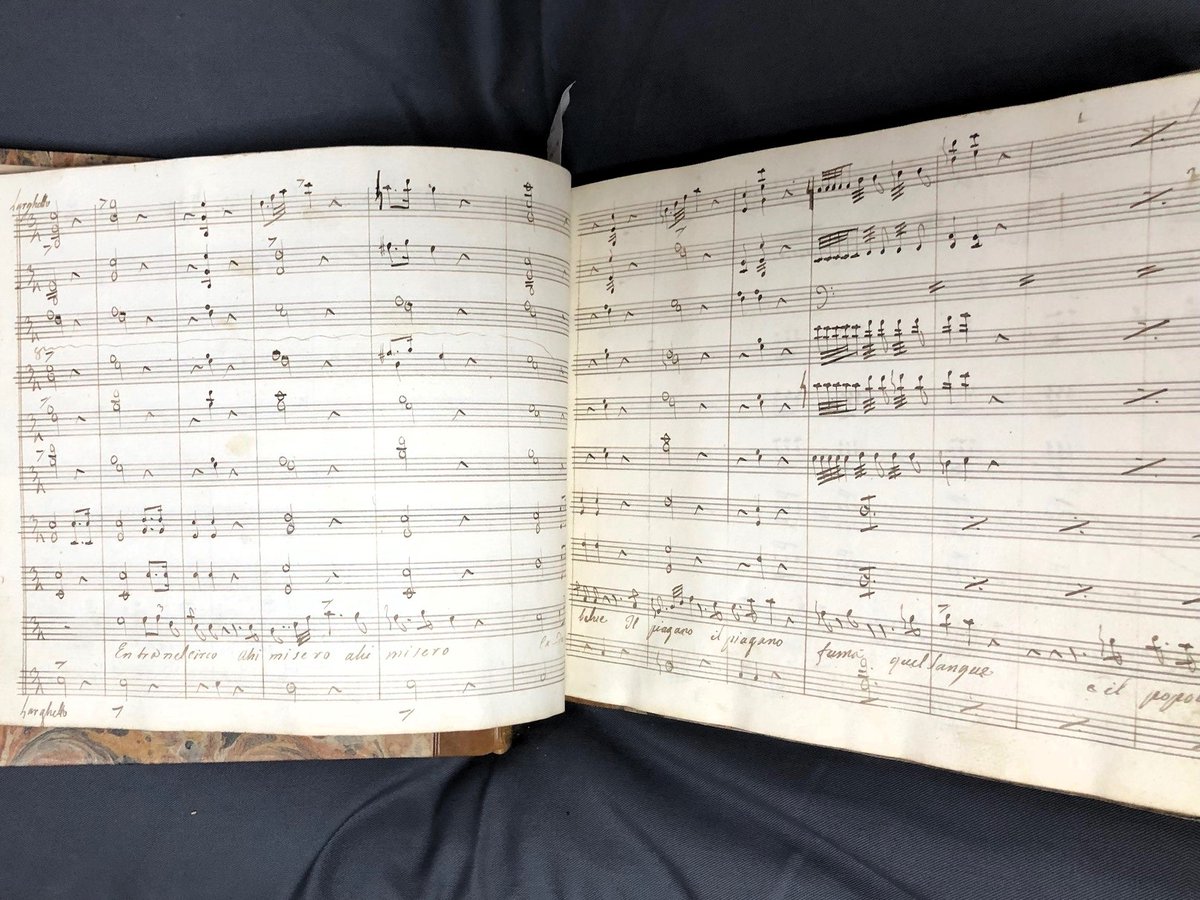 Larghetto
Entra nel circo ahi misero ahi misero
Larghetto
belve Il pagano il piagano
fuma quel sangue
e il popo